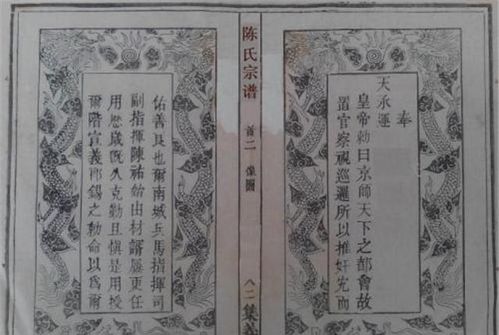 奉
天承運
皇帝勅曰京師天下之都會故
置官察視巡邏所以推奸宄而
陈氏宗谱
首二
像圖
八二
集義
佑善良也爾南城兵馬指揮司
副指揮陳祐始由材諝屢更任
用歷歲既久克勤且慎是用授
爾階宣義郎錫之勅命以爲爾